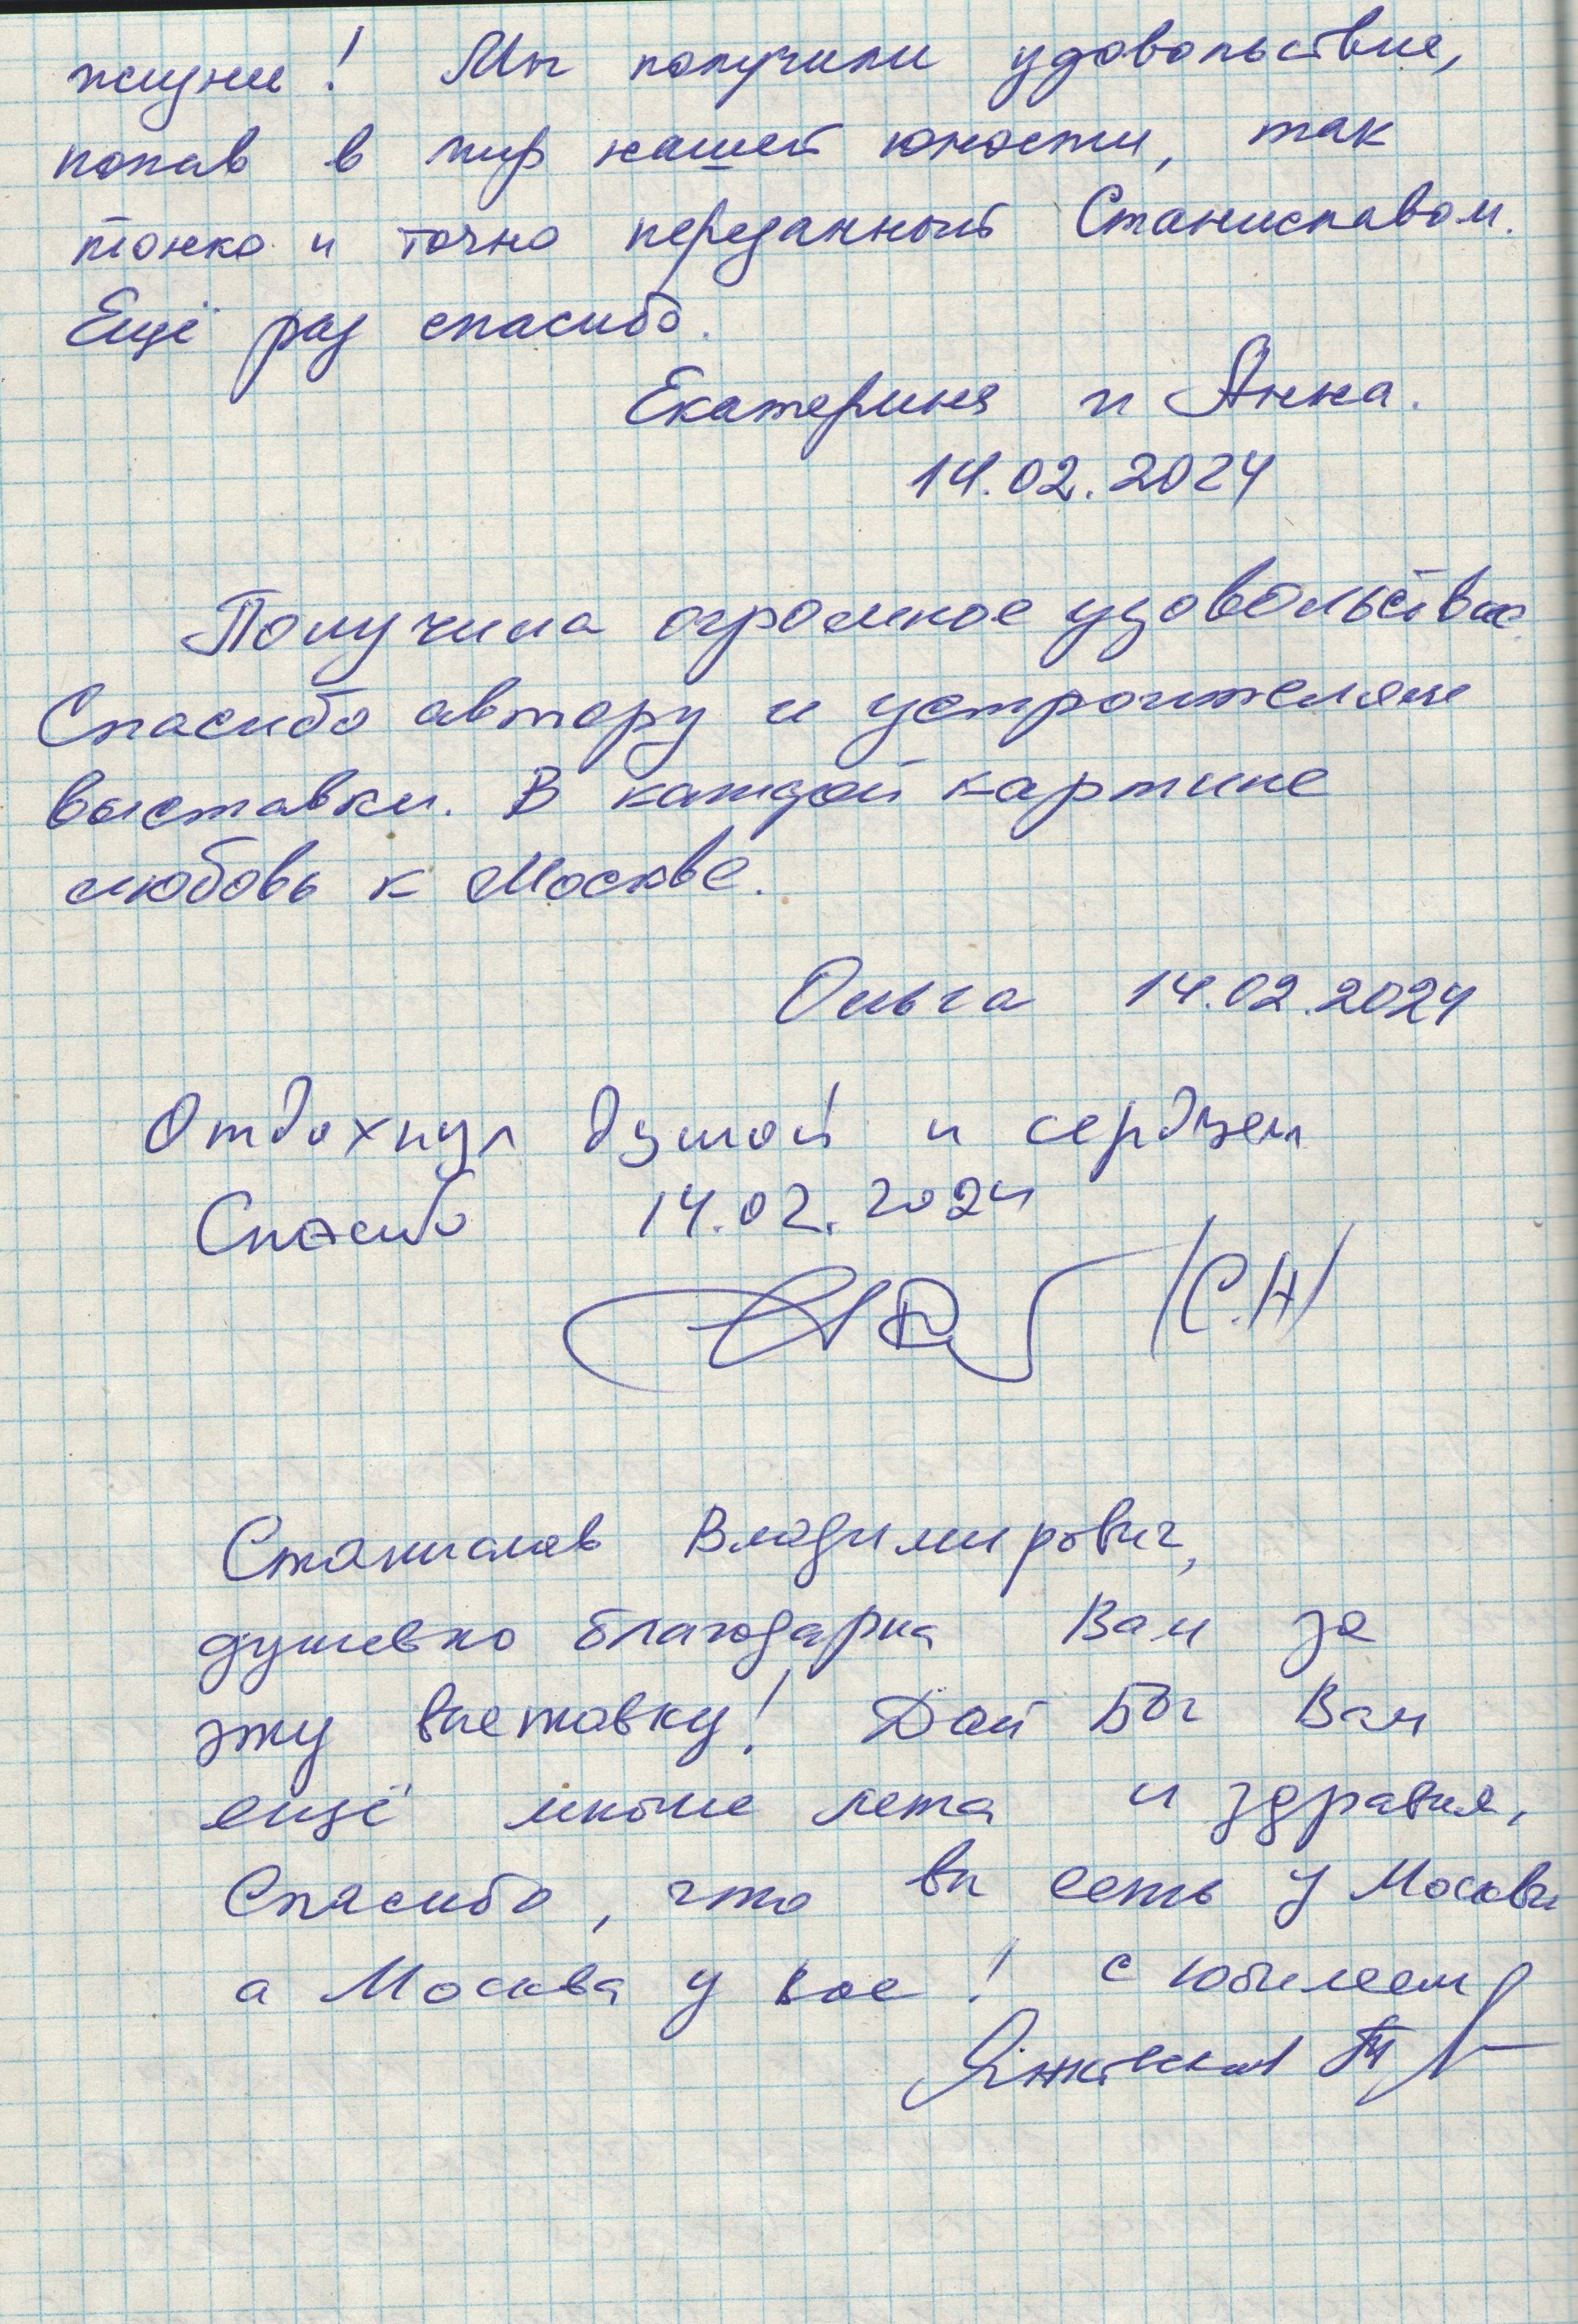 жизни! Мы получили удовольствие,
попав в мир нашей юности, так
тонко и точно переданный Станиславом.
Ещё раз спасибо.
Екатерина и Анна.
14.02.2024
Получила огромное удовольствие.
Спасибо автору и устроителям
выставки. В каждой картине
любовь к Москве.
Ольга 14.02.2024
Отдохнул душой и сердцем
Спасибо 14.02.2024
/С.Н/
Станислав Владимирович,
душевно благодарна Вам за
эту выставку! Дай Бог Вам
ещё многие лета и здравия,
Спасибо, что вы есть у Москвы
а Москва у вас! с юбилеем